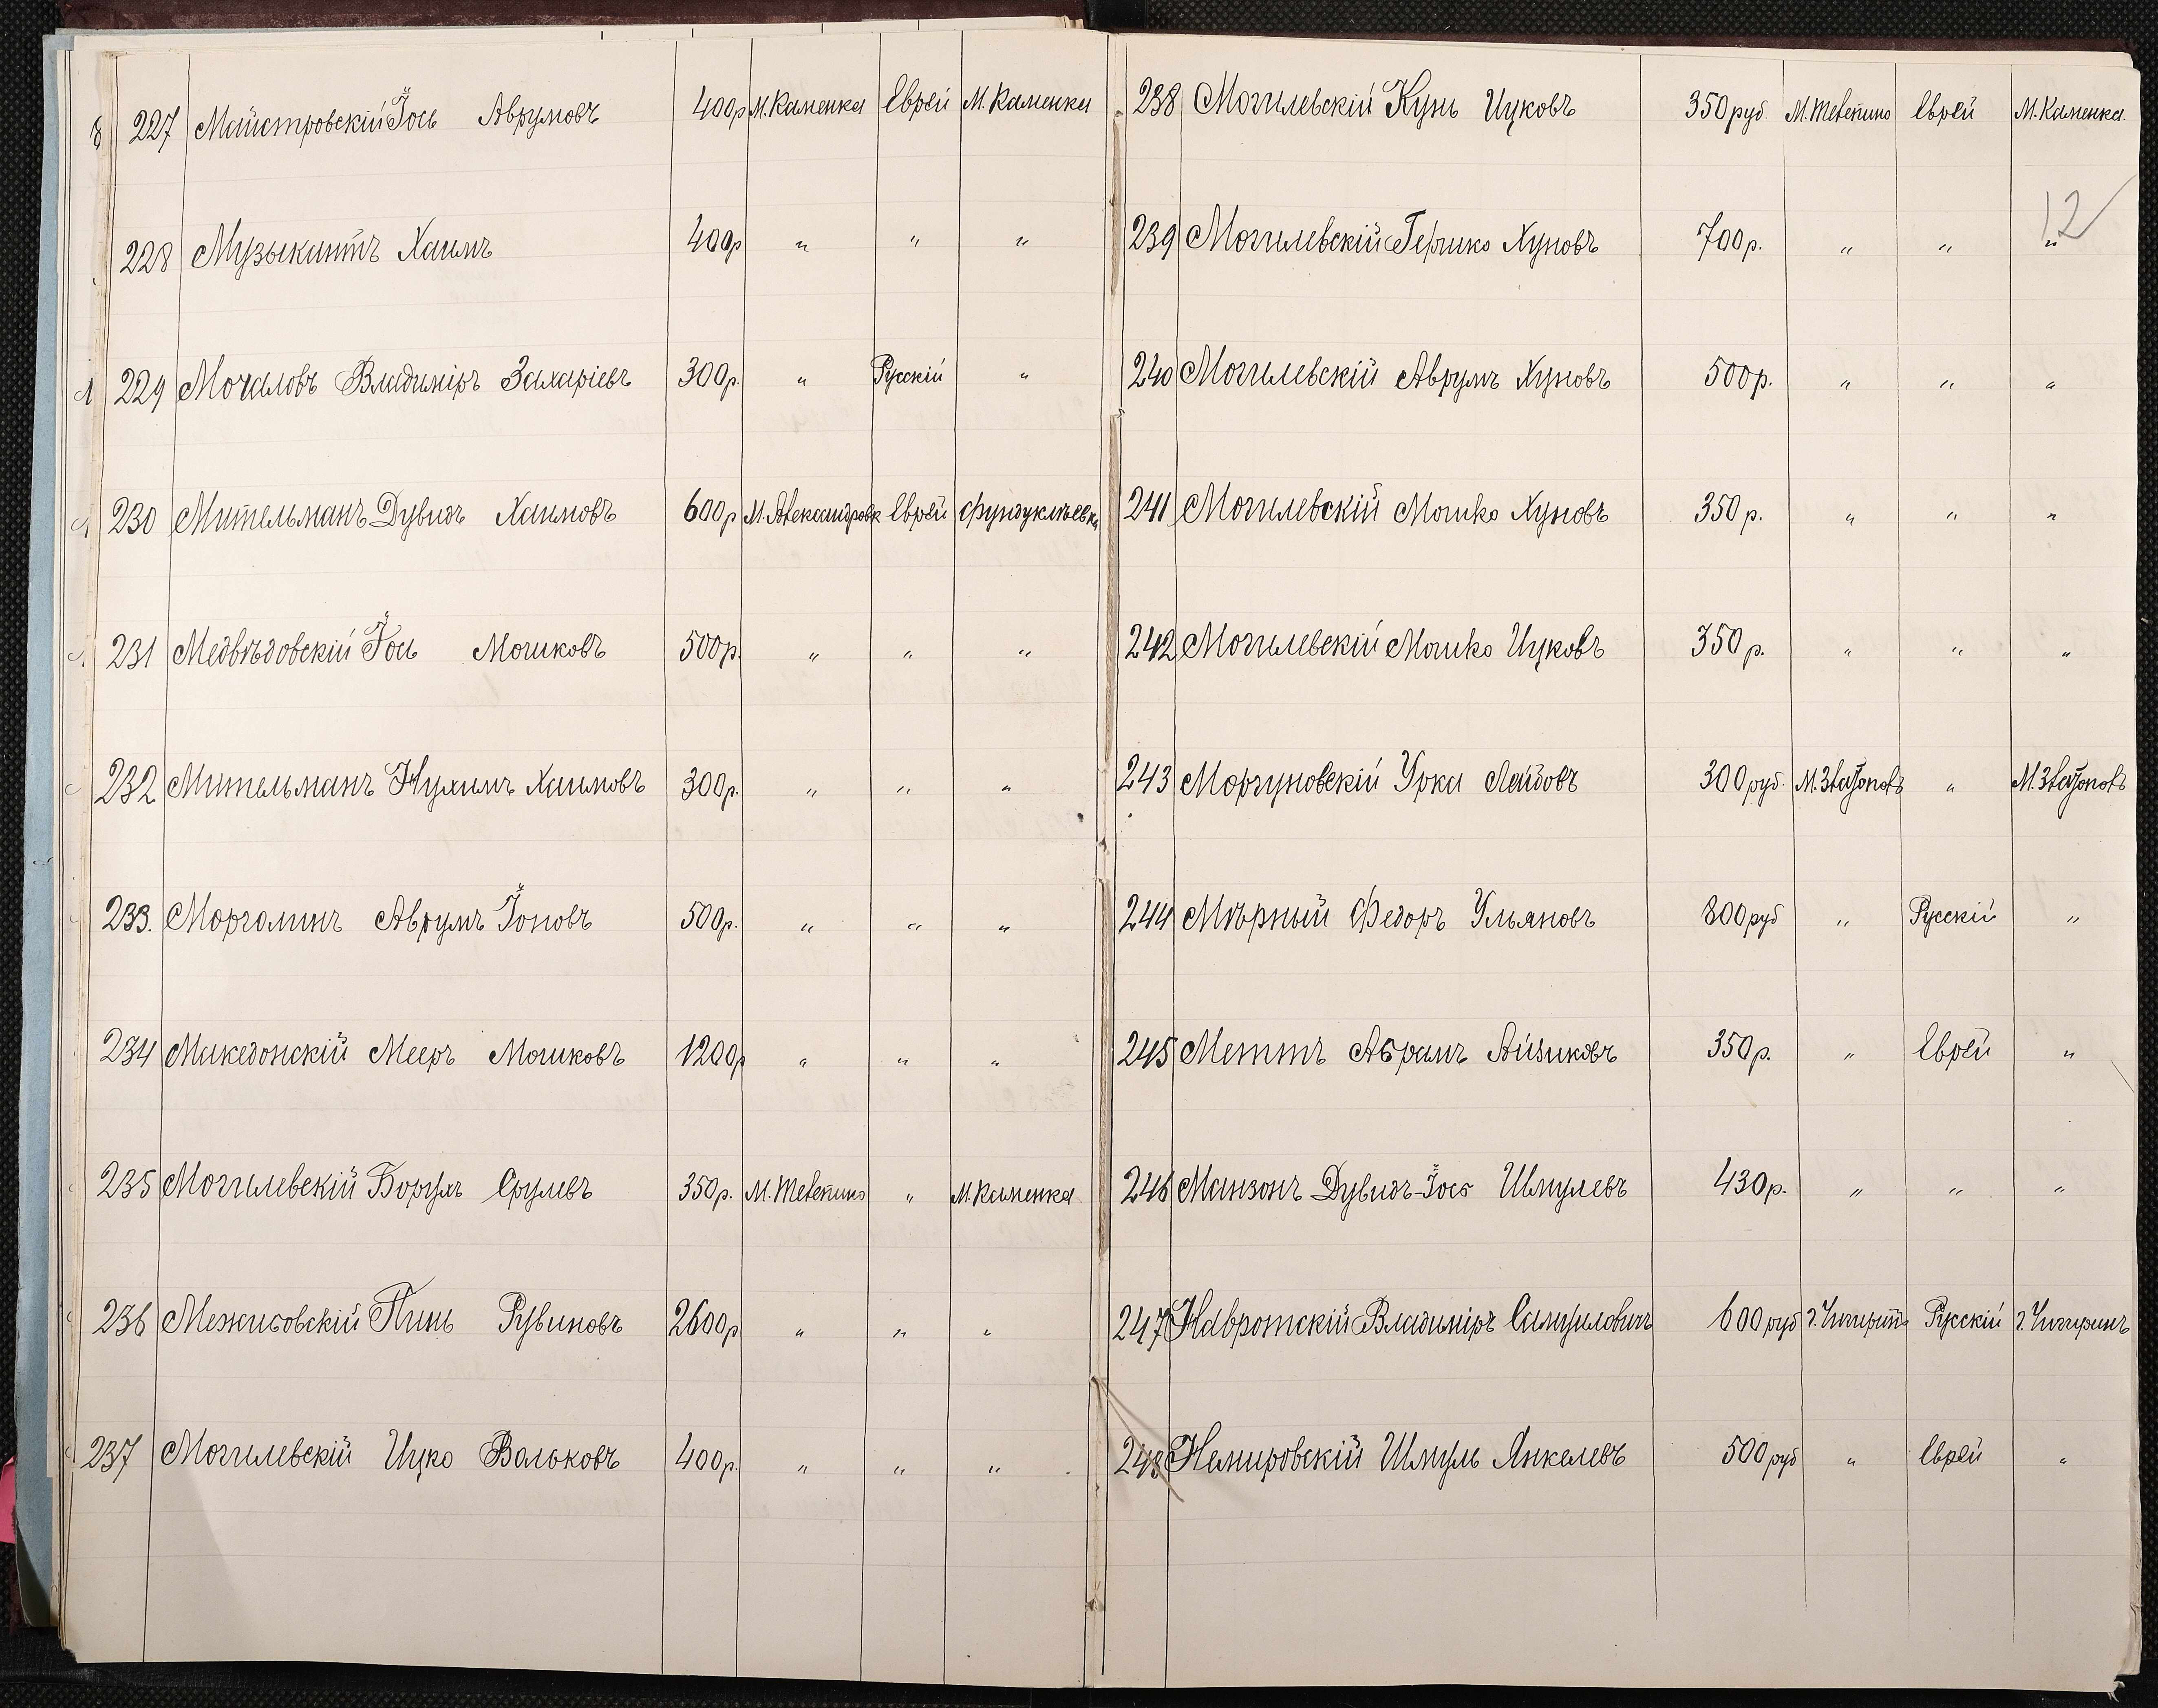 227 Майстровскій Іось Аврумовъ 400р М. Каменка Еврей М. Каменка
228 Музыкантъ Хаимъ 400р " " "
229 Мочаловъ Владиміръ Захаріевъ 300р. " Русскій "
230 Мительманъ Дувидъ Хаимовъ 600р М. Александровк Еврей Фундуклѣевка
231 Медвѣдовскій Іось Мошковъ 500р. " " "
232 Мительманъ Нухимъ Хаимовъ 300р. " " "
233. Морголинъ Аврумъ Іоновъ 500р. " " "
234 Македонскій Мееръ Мошковъ 1200р " " "
235 Могилевскій Борухъ Срулевъ 350р. М. Телепино " М. Каменка
236 Межисовскій Пинь Рувиновъ 2600р " " "
237 Могилевскій Ицко Вольковъ 400р. " " "
238 Могилевскій Кунь Ицковъ 350руб. М. Телепино Еврей М. Каменка.
12
239 Могилевскій Гершко Хуновъ 700р. " " "
240 Могилевскій Аврумъ Хуновъ 500р. " " "
241 Могилевскій Мошко Хуновъ 350р. " " "
242 Могилевскій Мошко Ицковъ 350р. " " "
243 Моргуновскій Урка Лейбовъ 300руб. М. Златополь " М. Златополь
244 Мѣрный Федоръ Ульяновъ 800руб " Русскій "
245 Меттъ Абрамъ Айзиковъ 350р. " Еврей "
246 Манзонъ Дувидъ-Іось Шмулевъ 430р. " " "
247 Навротскій Владиміръ Самуиловичъ 600руб г. Чигиринъ Русскій г. Чигиринъ
248 Немировскій Шмуль Янкелевъ 500руб " Еврей "